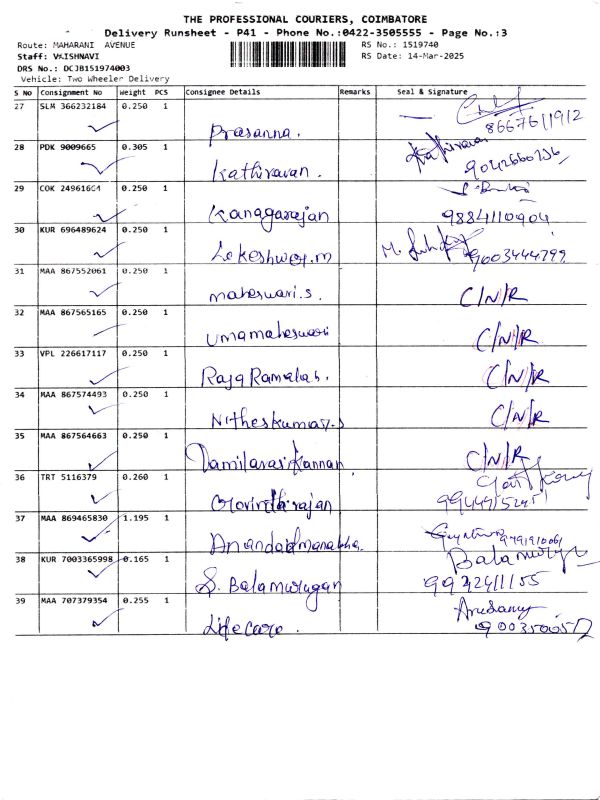 THE PROFESSIONAL COURIERS, COIMBATORE
Delivery Runsheet - P41 - Phone No.:0422-3505555 - Page No.:3
Route: MAHARANI AVENUE
RS No.: 1519740
Staff: VAISHNAVI
RS Date: 14-Mar-2025
DRS No.: DCJB151974003
Vehicle: Two Wheeler Delivery
S No Consignment No Weight PCS Consignee Details Remarks Seal & Signature
27 SLM 366232184 0.250 1
Prasanna. 8667611912
28 PDK 9009665 0.305 1
Kathiravan. Kathiravan
29 COK 24961664 0.250 1
Kanagarajan 9884110904
30 KUR 696489624 0.250 1
Lokeshwer.m 9003444799
31 MAA 867552061 0.250 1
maheswari.s. C/N/R
32 MAA 867565165 0.250 1
umamaheswari C/N/R
33 VPL 226617117 0.250 1
C/N/R
34 MAA 867574493 0.250 1
Nitheskumar.s C/N/R
35 MAA 867564663 0.250 1
Tamilarasi Kannan C/N/R
36 TRT 5116379 0.260 1
Govinthirajan
37 MAA 869465830 1.195 1
38 KUR 7003365998 0.165 1
Balamurugan
S. Balamurugan 9942411155
39 MAA 707379354 0.255 1
Life care.